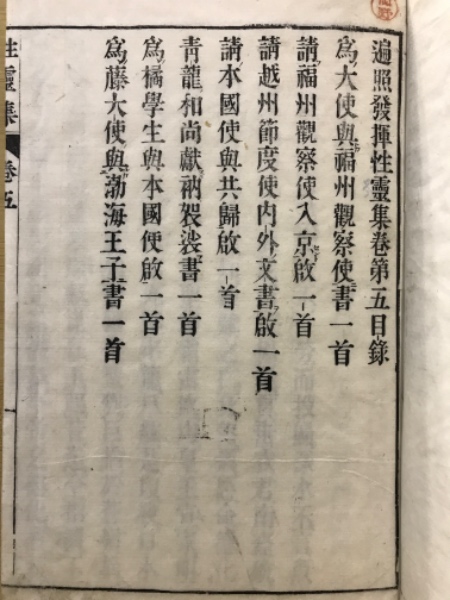 遍照發揮性靈集卷第五目錄
爲大使與福州觀察使書一首
請福州觀察使入京啟一首
請越州節度使內外文書啟一首
請本國使與共歸啟一首
青龍和尚獻衲袈裟書一首
爲橘學生與本國使啟一首
爲藤大使與渤海王子書一首
性靈集 卷五